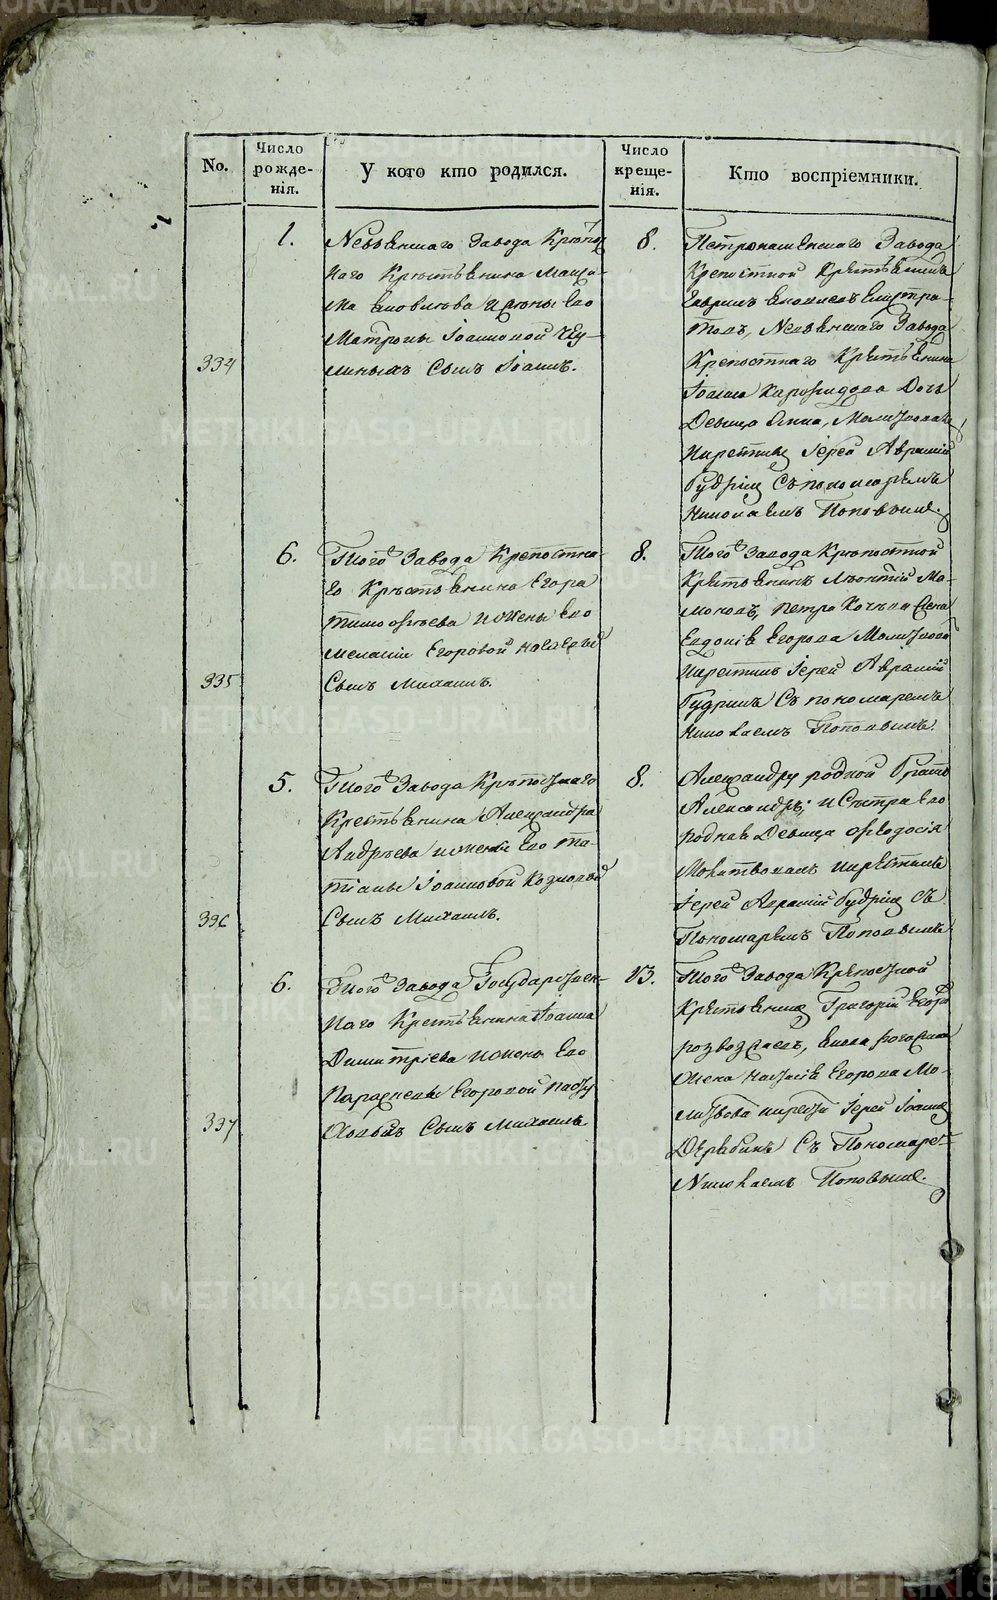 No.
Число рожде-нія.
У кого кто родился.
Число креще-нія.
Кто воспріемники.
334
1.
Невьянскаго Завода Крѣпос
наго Крестьянина Макси-
ма Яковлева и жены его
Матроны Іоанновой
Сынъ Іоаннъ.
8.
Петрокаменскаго Завода
Крепостной Крестьянинъ
Гаврилъ
Невьянскаго Завода
Крепостнаго Крестьянина
Іоанна Дочь
Девица Анна, Молитвовалъ
и крестилъ Іерей Аврамій
Гудринъ Съ пономаремъ
Николаемъ Поповымъ.
335
6.
Того Завода Крепостна-
го Крестьянина Егора
Тимофѣева и жены его
Меланіи Егоровой
Сынъ Михаилъ.
8.
Того Завода Крѣпостной
Крестьянинъ Леонтій Ма-
Петра жена
Евдокія Егорова Молитвовалъ
и крестилъ Іерей Аврамій
Гудринъ Съ пономаремъ
Николаемъ Поповымъ.
336
5.
Того Завода Крѣпостнаго
Крестьянина Александра
Андрѣева и жены его Та-
тіаны Іоанновой Козловой
Сынъ Михаилъ.
8.
Александру родной братъ
Александръ, и Сестра его
родная Девица Феодосія
Молитвовалъ и крестилъ
Іерей Аврамій Гудринъ съ
Пономаремъ Поповымъ
337
6.
Того Завода Государствен-
наго Крестьянина Іоанна
Димитріева и жены его
Параскевы Егоровой
Сынъ Михаилъ
13.
Того Завода Крепостной
Крестьянинъ Григорій Егоровъ
жена Егорова Мо-
литвовалъ и крести Іерей Іоаннъ
Дерябинъ Съ Пономаре-
Николаемъ Поповымъ.
METRIKI.GASO-URAL.RU